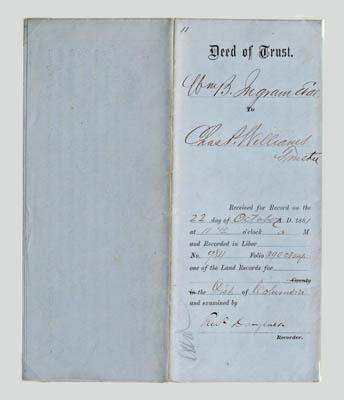 11
Deed of Trust.
Wm B. Ingram Esq.
To
Chas P. Williams
Trustee
Received for Record on the
22 day of October A. D. 1881
at 11 o'clock M
and Recorded in Liber
No. 984 Folio
one of the Land Records for
County
in the Dist of Columbia
and examined by
Fredk Douglass
Recorder.